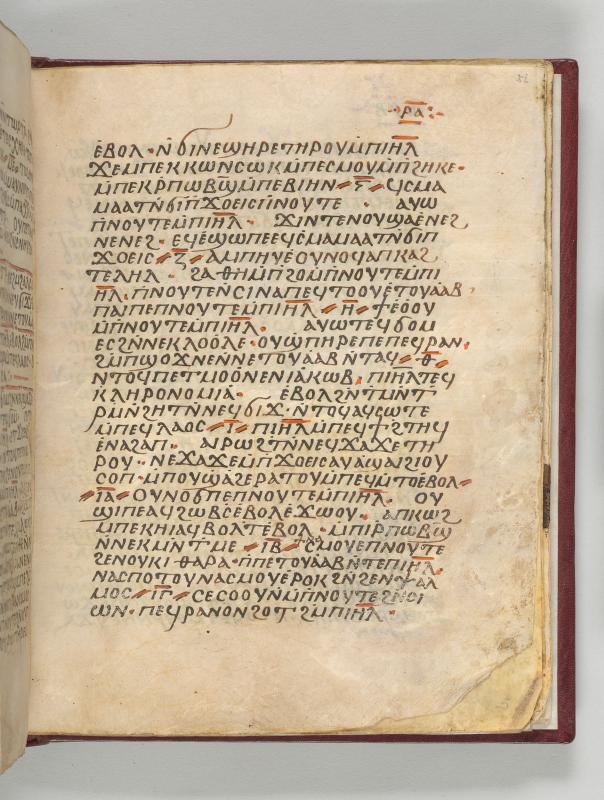 ⲣⲁ
ⲉⲃⲟⲗ · ⲛ̄ϭⲓⲛⲉϣⲏⲣⲉⲧⲏⲣⲟⲩⲙ̄ⲡⲓⲏ̄ⲗ
ϫⲉⲙⲡⲉⲕⲕⲱⲛ̄ⲥⲱⲕⲙ̄ⲡⲉⲥⲙⲟⲩⲙ̄ⲡϩⲏⲕⲉ ·
ⲙ̄ⲡⲉⲕⲣ̄ⲡⲱⲃϣ̄ⲙ̄ⲡⲉⲃⲓⲏⲛ
ⲙⲁⲁⲧⲛ̄ϭⲓⲡ̄ϫⲟⲉⲓⲥⲡ̄ⲛⲟⲩⲧⲉ · ⲁⲩⲱ
ⲡ̄ⲛⲟⲩⲧⲉⲙ̄ⲡⲓⲏ̄ⲗ · ϫⲓⲛⲧⲉⲛⲟⲩϣⲁⲉⲛⲉϩ
ⲛⲉⲛⲉϩ · ⲉϥⲉϣⲱⲡⲉⲉϥⲥⲙⲁⲙⲁⲁⲧⲛ̄ϭⲓⲡ
ϫⲟⲉⲓⲥ ⲍ̄ ⲁⲙⲡⲏⲩⲉⲟⲩⲛⲟϥⲁⲡⲕⲁϩ
ⲧⲉⲗⲏⲗ · ϩⲁⲑⲏⲙ̄ⲡϩⲟⲙ̄ⲡⲛⲟⲩⲧⲉⲙ̄ⲡⲓ
ⲏ̄ⲗ · ⲡⲛⲟⲩⲧⲉⲛ̄ⲥⲓⲛⲁⲡⲉϥⲧⲟⲟⲩⲉⲧⲟⲩⲁⲁⲃ
ⲡⲁⲓⲡⲉⲡⲛⲟⲩⲧⲉⲙ̄ⲡⲓⲏ̄ⲗ ⲏ̄ ϯⲉⲟⲟⲩ
ⲙ̄ⲡⲛⲟⲩⲧⲉⲙ̄ⲡⲓⲏ̄ⲗ · ⲁⲩⲱⲧⲉϥϭⲟⲙ
ⲉⲥϩⲛ̄ⲛⲉⲕⲗⲟⲟⲗⲉ · ⲟⲩϣⲡⲏⲣⲉⲡⲉⲡⲉϥⲣⲁⲛ ·
ϩⲙ̄ⲡϣⲟϫⲛⲉⲛ̄ⲛⲉⲧⲟⲩⲁⲁⲃⲛ̄ⲧⲁϥ ⲑ̄
ⲛ̄ⲧⲟϥⲡⲉⲧⲙⲟⲟⲛⲉⲛ̄ⲓⲁⲕⲱⲃ · ⲡⲓⲏ̄ⲗⲧⲉϥ
ⲕⲗⲏⲣⲟⲛⲟⲙⲓⲁ · ⲉⲃⲟⲗϩⲛ̄ⲧⲙⲛ̄ⲧ
ⲣⲙ̄ⲛ̄ϩⲏⲧⲛ̄ⲛⲉϥϭⲓϫ · ⲛ̄ⲧⲟϥⲁϥⲥⲱⲧⲉ
ⲙ̄ⲡⲉϥⲗⲁⲟⲥ ⲓ̄ ⲡⲓⲏ̄ⲗⲙ̄ⲡⲉϥϯϩⲧⲏϥ
ⲉⲛⲁϩⲁⲡ · ⲁⲓⲣⲱϩⲧⲛ̄ⲛⲉϥϫⲁϫⲉⲧⲏ
ⲣⲟⲩ · ⲛⲉϫⲁϫⲉⲙ̄ⲡϫⲟⲉⲓⲥⲁⲩⲁϣⲁⲓϩⲓⲟⲩ
ⲥⲟⲡ · ⲙ̄ⲡⲟⲩϣⲁϩⲉⲣⲁⲧⲟⲩⲙ̄ⲡⲉϥⲙ̄ⲧⲟⲉⲃⲟⲗ ·
ⲓ̄ⲁ̄ ⲟⲩⲛⲟϭⲡⲉⲡⲛⲟⲩⲧⲉⲙ̄ⲡⲓⲏ̄ⲗ · ⲟⲩ
ϣⲓⲡⲉⲁϥϩⲱⲃⲥ̄ⲉⲃⲟⲗⲉϫⲱⲟⲩ · ⲁⲡⲕⲱϩ
ⲙ̄ⲡⲉⲕⲏⲓⲁϥⲃⲱⲗⲧⲉⲃⲟⲗ · ⲙ̄ⲡⲓⲣ̄ⲡⲱⲃϣ̄
ⲛ̄ⲛⲉⲕⲙⲛ̄ⲧⲙⲉ ⲓ̄ⲃ̄ ⲥⲙⲟⲩⲉⲡⲛⲟⲩⲧⲉ
ϩⲉⲛⲟⲩⲕⲓⲑⲁⲣⲁ · ⲡ̄ⲡⲉⲧⲟⲩⲁⲁⲃⲛ̄ⲧⲉⲡⲓⲏ̄ⲗ ·
ⲛⲁⲥⲡⲟⲧⲟⲩⲛⲁⲥⲙⲟⲩⲉⲣⲟⲕϩⲛ̄ϩⲉⲛⲯⲁⲗ
ⲙⲟⲥ ⲓ̄ⲅ̄ ⲥⲉⲥⲟⲟⲩⲛⲙ̄ⲡⲛⲟⲩⲧⲉϩⲛ̄ⲥⲓ
ⲱⲛ · ⲡⲉϥⲣⲁⲛⲟⲛϩⲟⲧϩⲙ̄ⲡⲓⲏ̄ⲗ ·